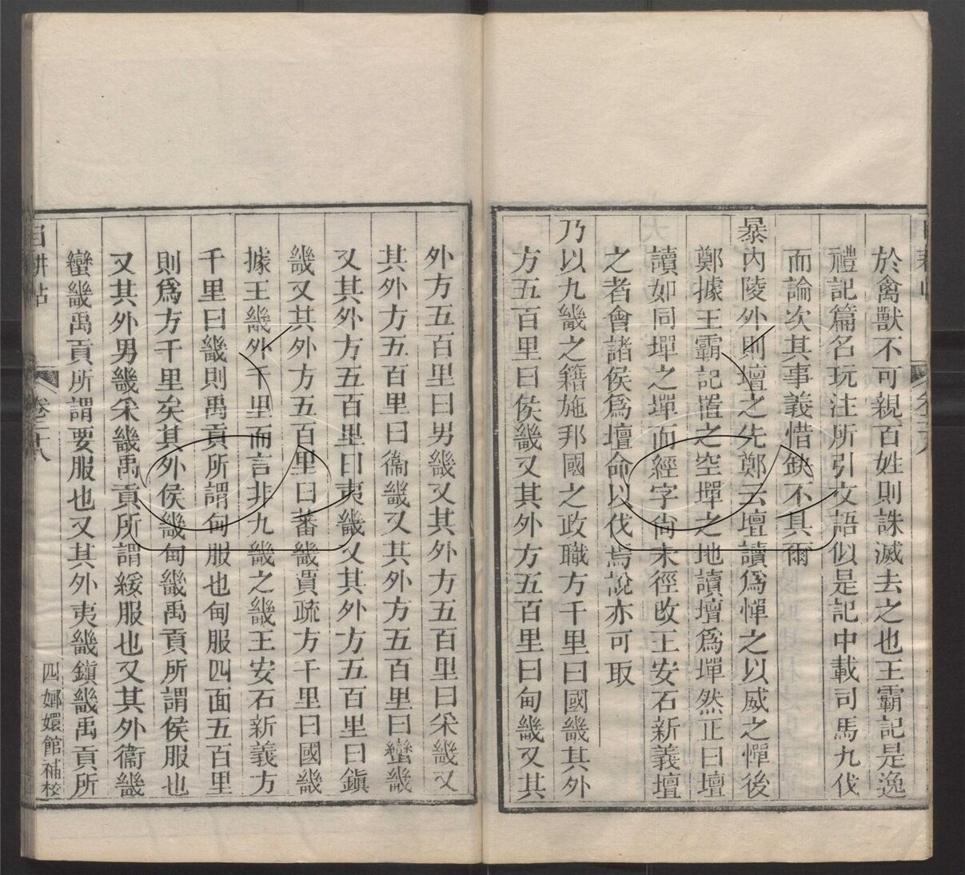 於禽獸不可親百姓則誅滅去之也王霸記是逸
禮記篇名玩注所引文語似是記中載司馬九伐
而論次其事義惜缺不具爾
暴內陵外則壇之先鄭云壇讀爲憚之以威之憚後
鄭據王霸記置之空墠之地讀壇爲墠然正曰壇
讀如同墠之墠而經字尙未徑改王安石新義壇
之者會諸侯爲壇命以伐焉說亦可取
乃以九畿之籍施邦國之政職方千里曰國畿其外
方五百里曰侯畿又其外方五百里曰甸畿又其
外方五百里曰男畿又其外方五百里曰采畿又
其外方五百里曰衞畿又其外方五百里曰蠻畿
又其外方五百里曰夷畿又其外方五百里曰鎭
畿又其外方五百里曰蕃畿賈疏方千里曰國畿
據王畿外千里而言非九畿之畿王安石新義方
千里曰畿則禹貢所謂甸服也甸服四面五百里
則爲方千里矣其外侯畿甸畿禹貢所謂侯服也
又其外男畿采畿禹貢所謂綏服也又其外衞畿
蠻畿禹貢所謂要服也又其外夷畿鎭畿禹貢所
卷二十八
四嫏嬛館補校